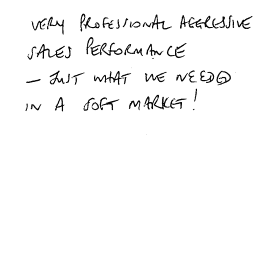 VERY PROFESSIONAL AGGRESSIVE
SALES PERFORMANCE
– JUST WHAT WE NEEDED
IN A SOFT MARKET!